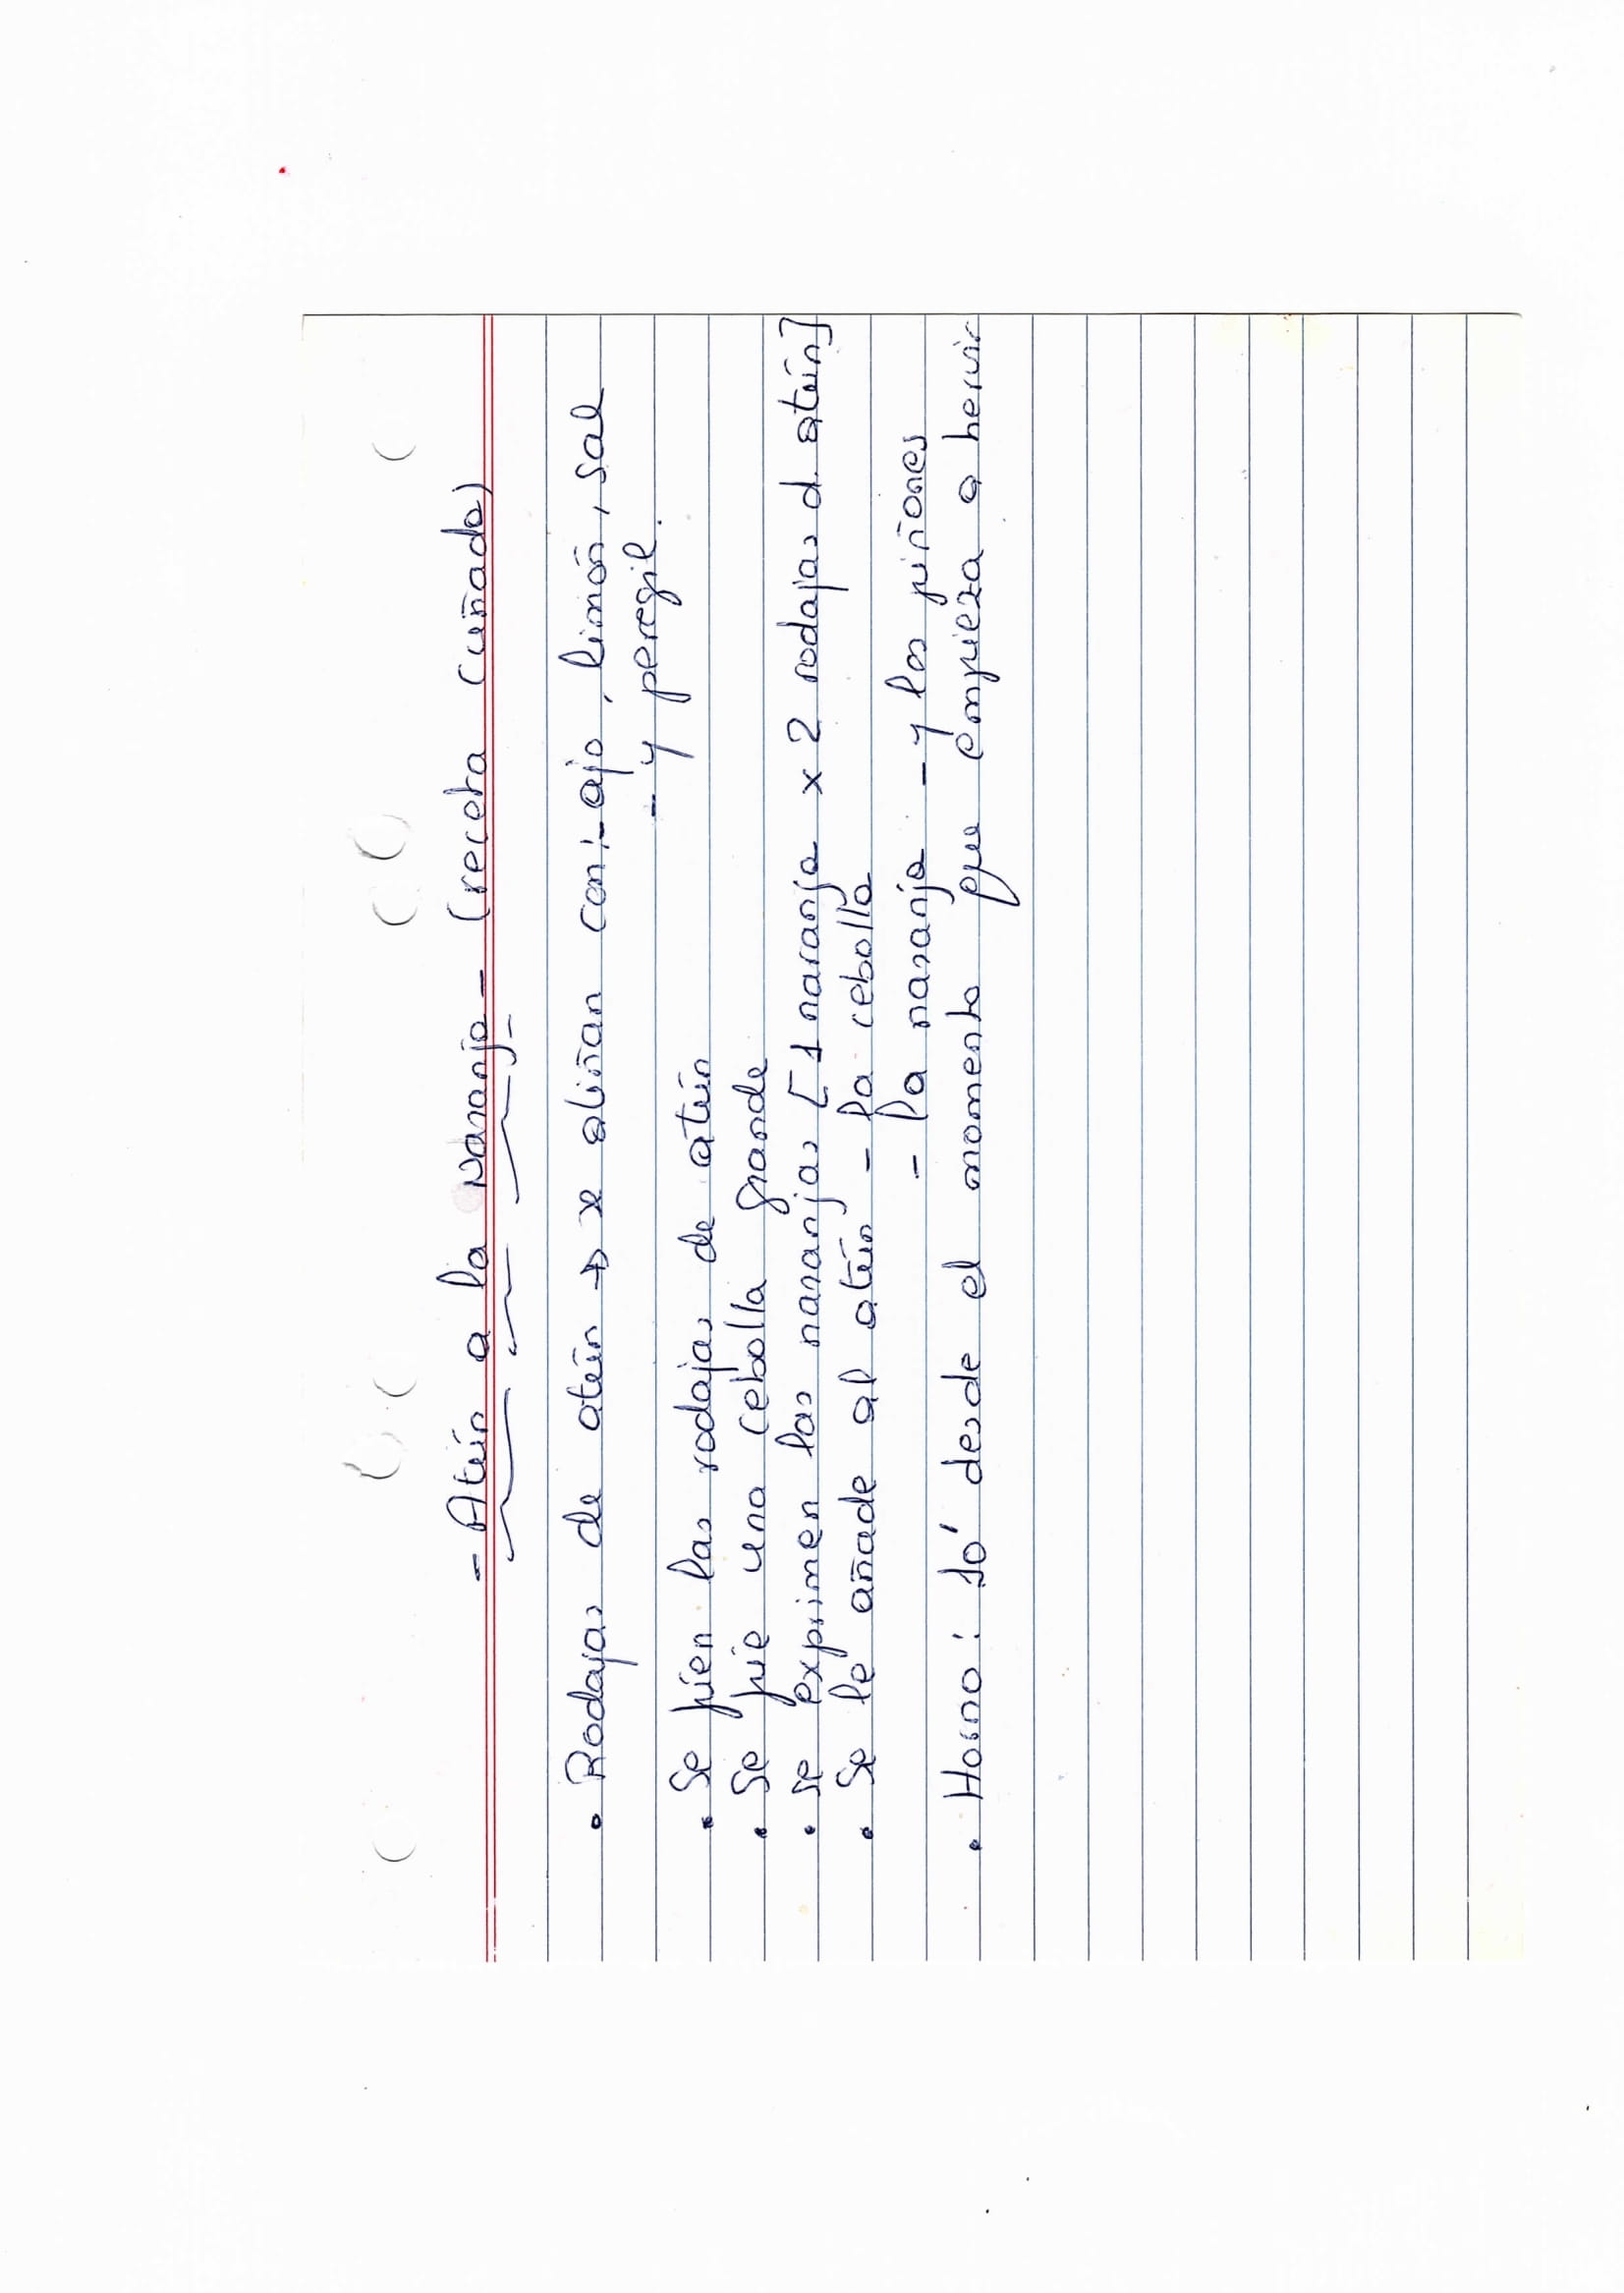 - Atún a la Naranja - (receta Cuñada)
• Rodajas de atún → se aliñan con: - ajo, limón, sal
- y peregil.
• Se fíen las rodajas de atún
• Se fie una cebolla grande
• se exprimen las naranjas [1 naranja x 2 rodajas d. atún]
• Se le añade al atún - la cebolla
- la naranja - y los piñones
• Horno: 10' desde el momento que empieza a hervir